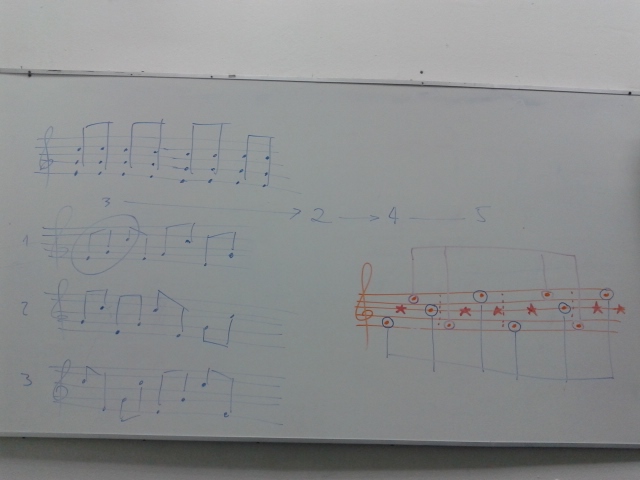 3 → 2 → 4 — 5
1
2
3